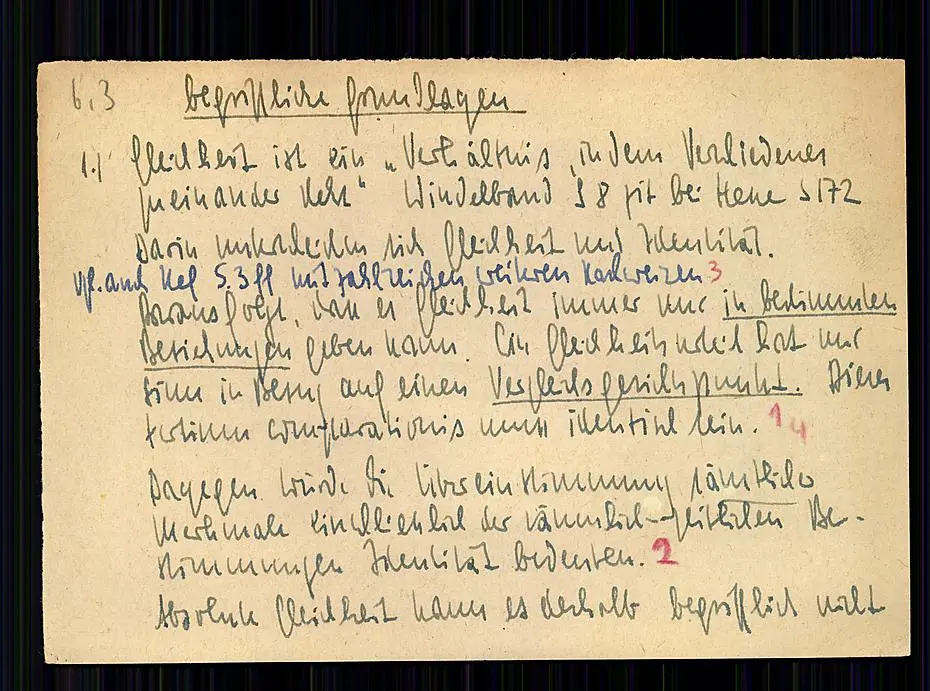 6,3 begriffliche Grundlagen
1.) Gleichheit ist ein „Verhältnis, in dem Verschiedenes
zueinander steht" Windelband S 8 zit bei Nef S 172
Darin unterscheiden sich Gleichheit und Identität.
vgl. auch Nef S. 3 ff mit zahlreichen weiteren Nachweisen 3
Daraus folgt, dass es Gleichheit immer nur in bestimmten
Beziehungen geben kann. Ein Gleichheitsurteil hat nur
Sinn in Bezug auf einen Vergleichsgesichtspunkt. Dieses
tertium comparationis muss identisch sein. 1 4
Dagegen würde die Übereinstimmung sämtlicher
Merkmale einschliesslich der räumlich-zeitlichen Be-
stimmungen Identität bedeuten. 2
Absolute Gleichheit kann es deshalb begrifflich nicht